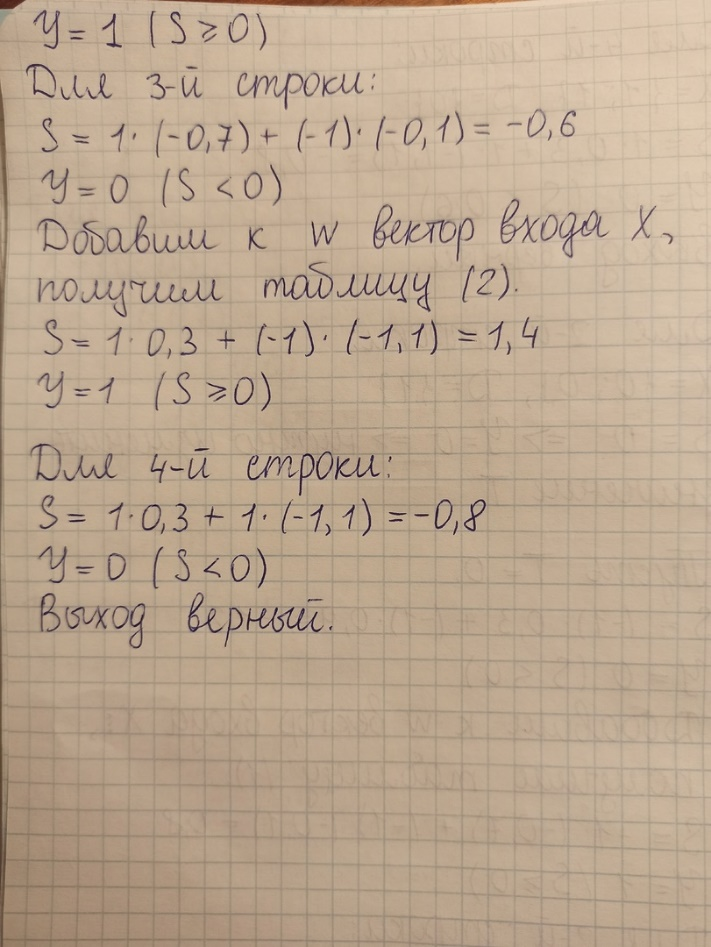 Y = 1 (S ⩾ 0)
Для 3-й строки:
S = 1 · (-0,7) + (-1) · (-0,1) = -0,6
Y = 0 (S < 0)
Добавим к W вектор входа X,
получим таблицу (2).
S = 1 · 0,3 + (-1) · (-1,1) = 1,4
Y = 1 (S ⩾ 0)
Для 4-й строки:
S = 1 · 0,3 + 1 · (-1,1) = -0,8
Y = 0 (S < 0)
Выход верный.